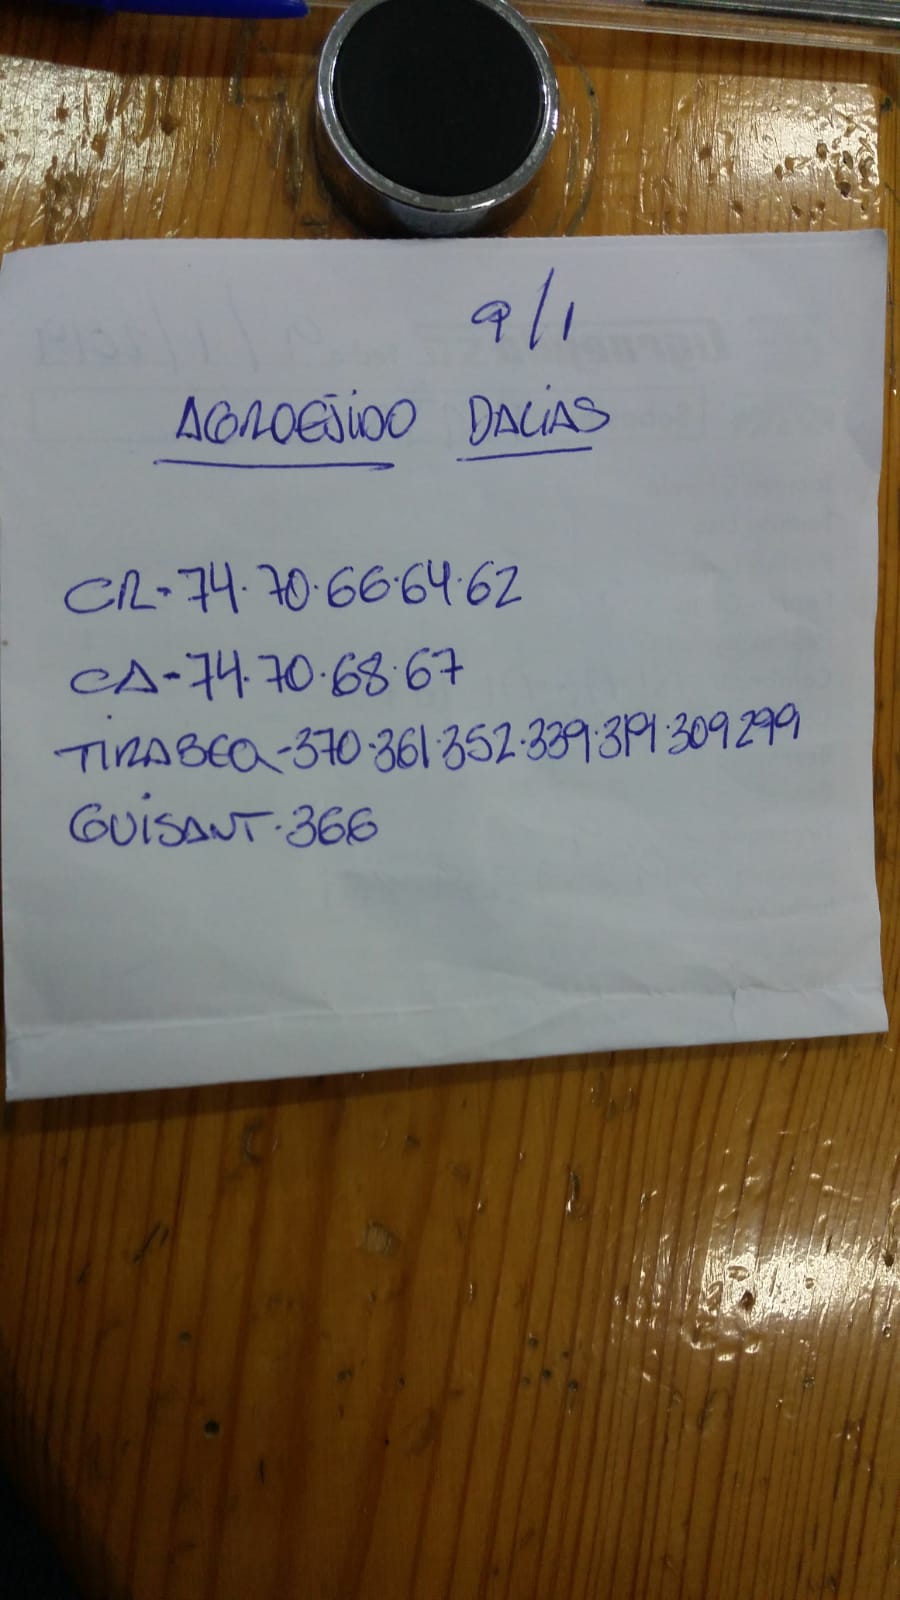 9/1
AGROEJIDO DALIAS
CR-74·70·66·64·62
CA-74·70·68·67
TIRABEQ-370·361·352·339·319·309 299
GUISANT·366